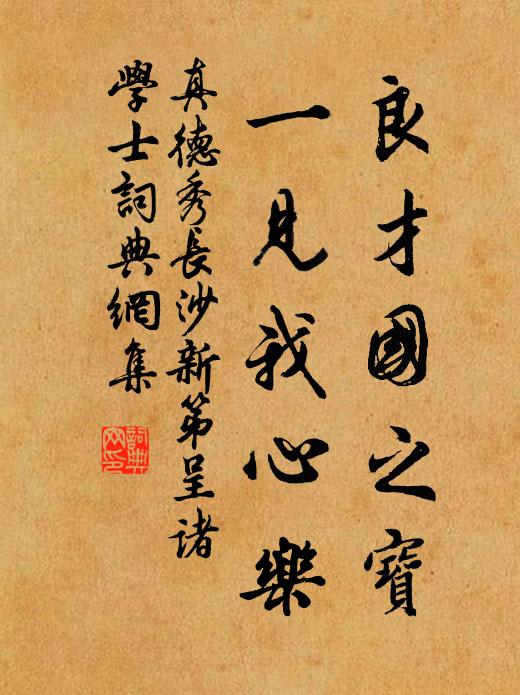 良才國之寶
一見我心樂
真德秀長沙新第呈諸
學士詞典網集
詞典
网印